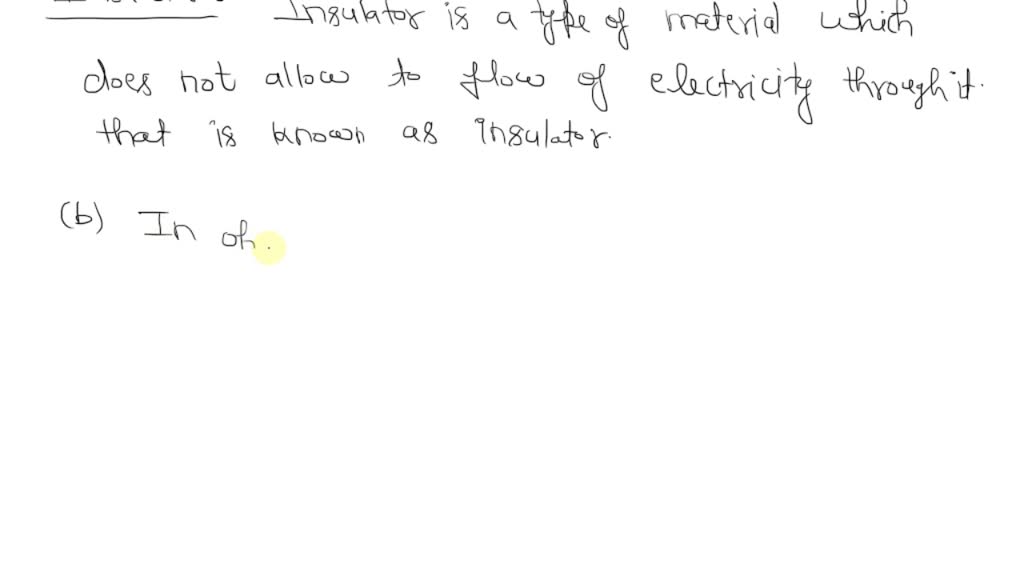 Insulator is a type of material which
does not allow to flow of electricity through it.
that is known as insulator.
(b) In oh.